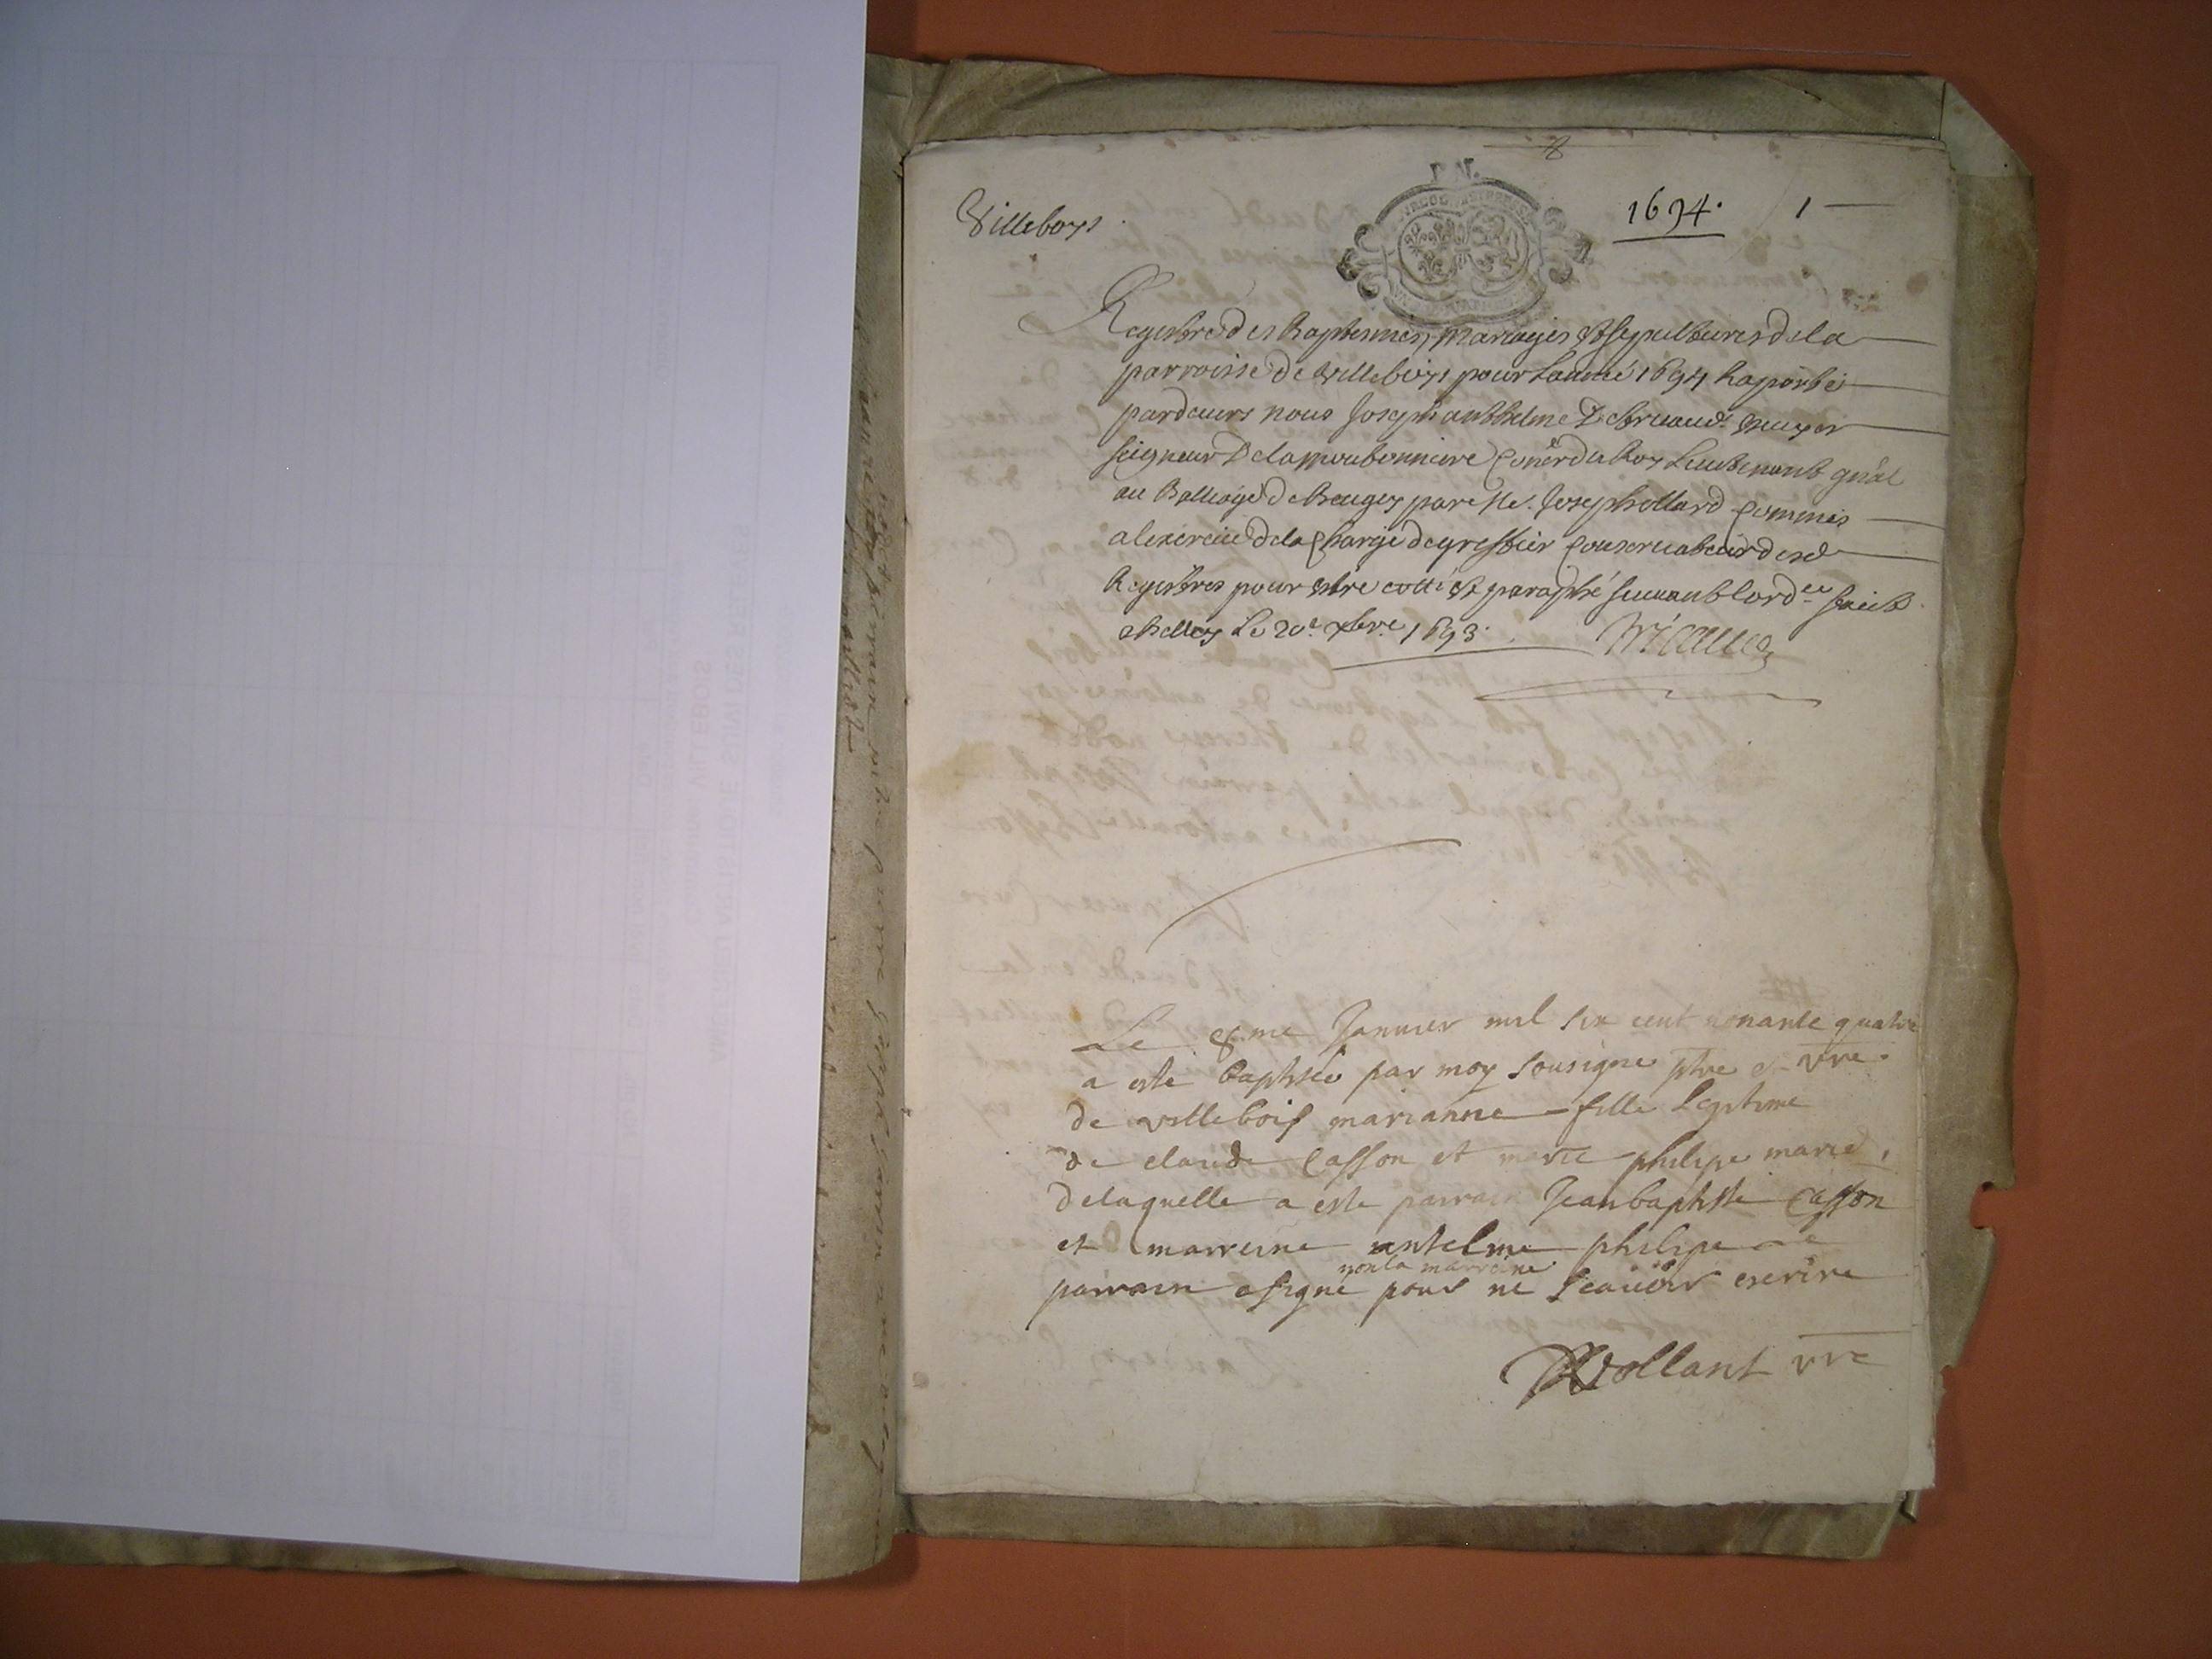 Villeboys
1694. 1
Registre des Baptesmes, mariages et sepultures de la
parroisse de Villeboys pour Lannée 1694 Raporté
pardevers nous Joseph anthelme
seigneur De la moubonniere du Roy Lieutenant gnal
au Balliage de Beugey par Me. Joseph ollard Commis
a lexercice de la Charge de greffier Conservateur desd
Registres pour estre cotté et paraphé suivant lord
a Belley Le 20e xbre 1693.
Le 8me Janvier mil six cent nonante quatre
a este Baptisée par moy sousigne ptre et vre
de villebois marianne fille Legitime
de claude Casson et marie philipe maries,
delaquelle a este parrain Jeanbaptiste Casson
et marreine antelme philipe Le
non la marreine
parrain a signé pour ne scauoir escrire
Vollant vre